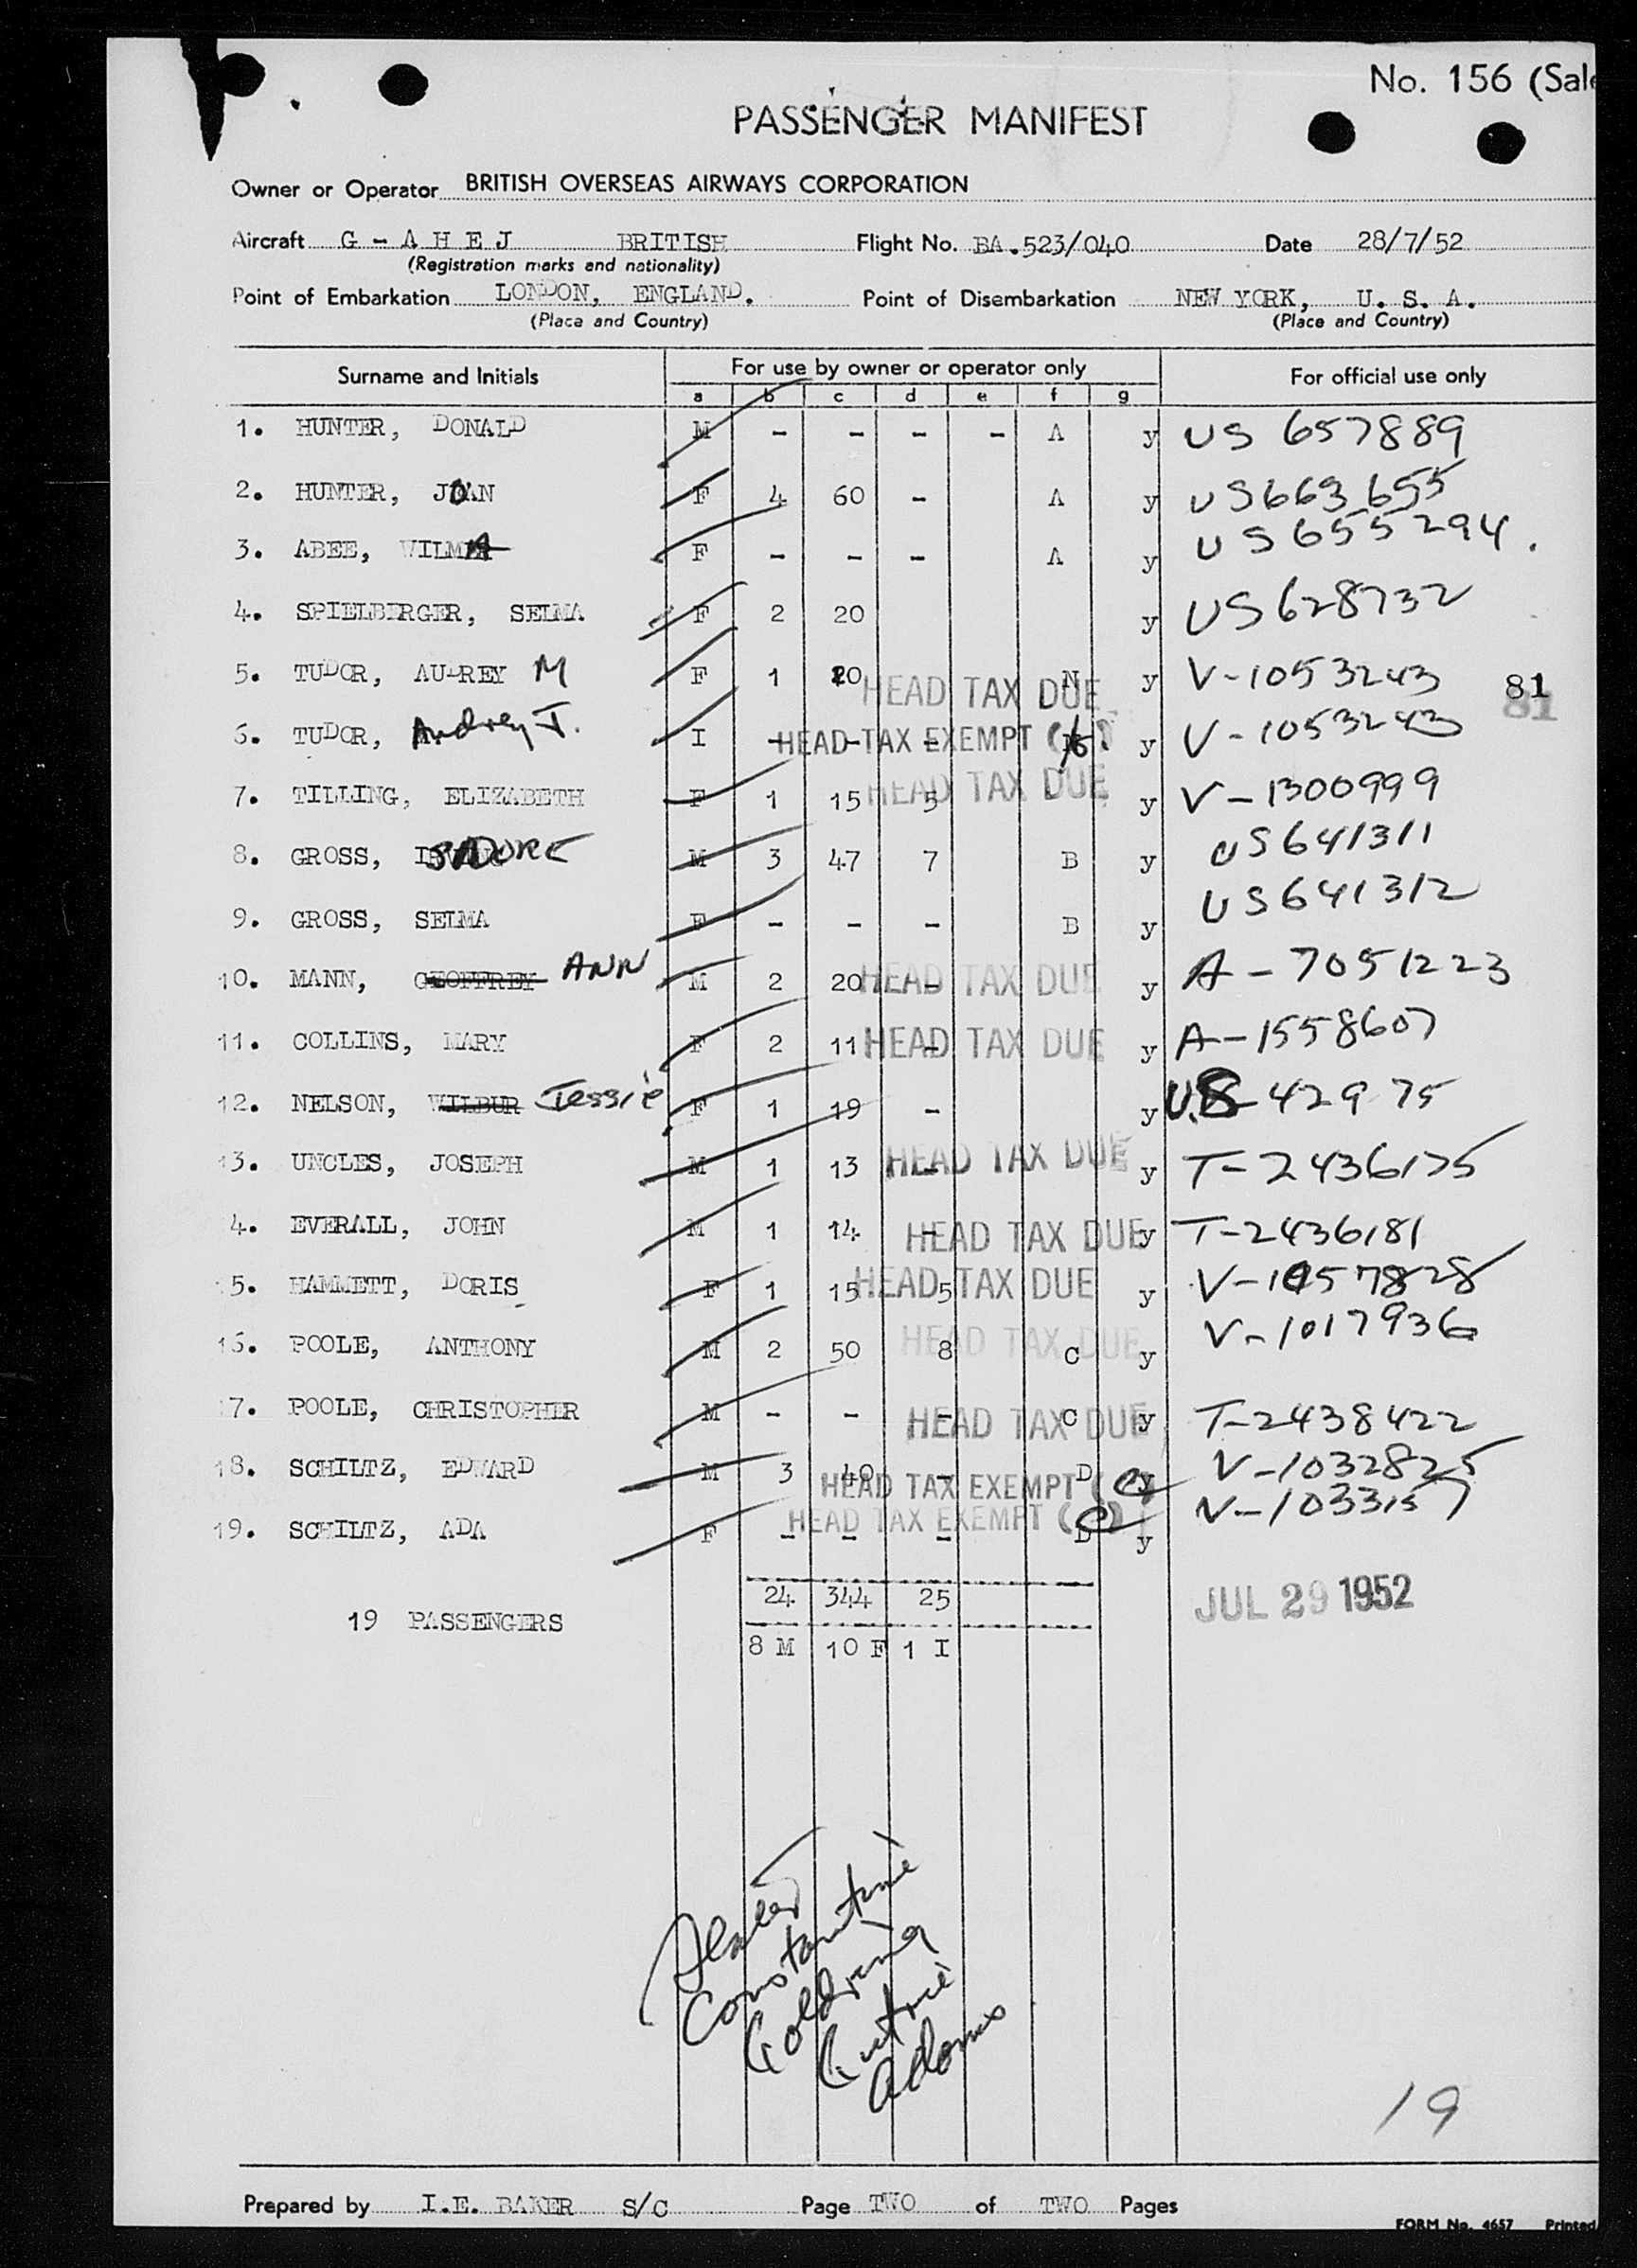 No. 156 (Sale
PASSENGER MANIFEST
Owner or Operator BRITISH OVERSEAS AIRWAYS CORPORATION
Aircraft G - A H E J BRITISH Flight No. BA.523/040 Date 28/7/52
(Registration marks and nationality)
Point of Embarkation LONDON, ENGLAND. Point of Disembarkation NEW YORK, U. S. A.
(Place and Country) (Place and Country)
Surname and Initials For use by owner or operator only For official use only
a b c d e f g
1. HUNTER, DONALD M - - - - A y US 657889
2. HUNTER, JOAN F 4 60 - A y US663655
3. ABEE, WILMA F - - - A y US655294.
4. SPIELBERGER, SELMA F 2 20 y US628732
5. TUDOR, AUDREY M F 1 20 HEAD TAX DUE N y V-1053243 81
6. TUDOR, Audrey J. I - HEAD TAX EXEMPT y V-1053243
7. TILLING, ELIZABETH F 1 15 5 HEAD TAX DUE y V-1300999
8. GROSS, ISADORE M 3 47 7 B y US641311
9. GROSS, SELMA F - - - B y US641312
10. MANN, GEOFFREY ANN M 2 20 - HEAD TAX DUE y A-7051223
11. COLLINS, MARY F 2 11 - HEAD TAX DUE y A-1558607
12. NELSON, WILBUR Jessie F 1 19 - y U.S 42975
13. UNCLES, JOSEPH M 1 13 - HEAD TAX DUE y T-2436175
4. EVERALL, JOHN M 1 14 - HEAD TAX DUE y T-2436181
5. HAMMETT, DORIS F 1 15 5 HEAD TAX DUE y V-1057828
16. POOLE, ANTHONY M 2 50 8 HEAD TAX DUE C y V-1017936
7. POOLE, CHRISTOPHER M - - - HEAD TAX DUE C y T-2438422
18. SCHILTZ, EDWARD M 3 40 - HEAD TAX EXEMPT (e) D y V-1032825
19. SCHILTZ, ADA F - - - HEAD TAX EXEMPT (e) D y V-1033157
24 344 25
JUL 29 1952
19 PASSENGERS
8 M 10 F 1 I
Constantine
Goldring
Adams
19
Prepared by I.E. BAKER S/C Page TWO of TWO Pages
FORM No. 4657 Printed